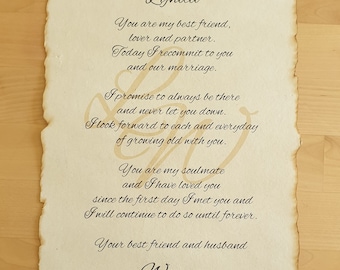 You are my best friend,
lover and partner.
Today I recommit to you
and our marriage.
I promise to always be there
and never let you down.
I look forward to each and everyday
of growing old with you.
You are my soulmate
and I have loved you
since the first day I met you and
I will continue to do so until forever.
Your best friend and husband